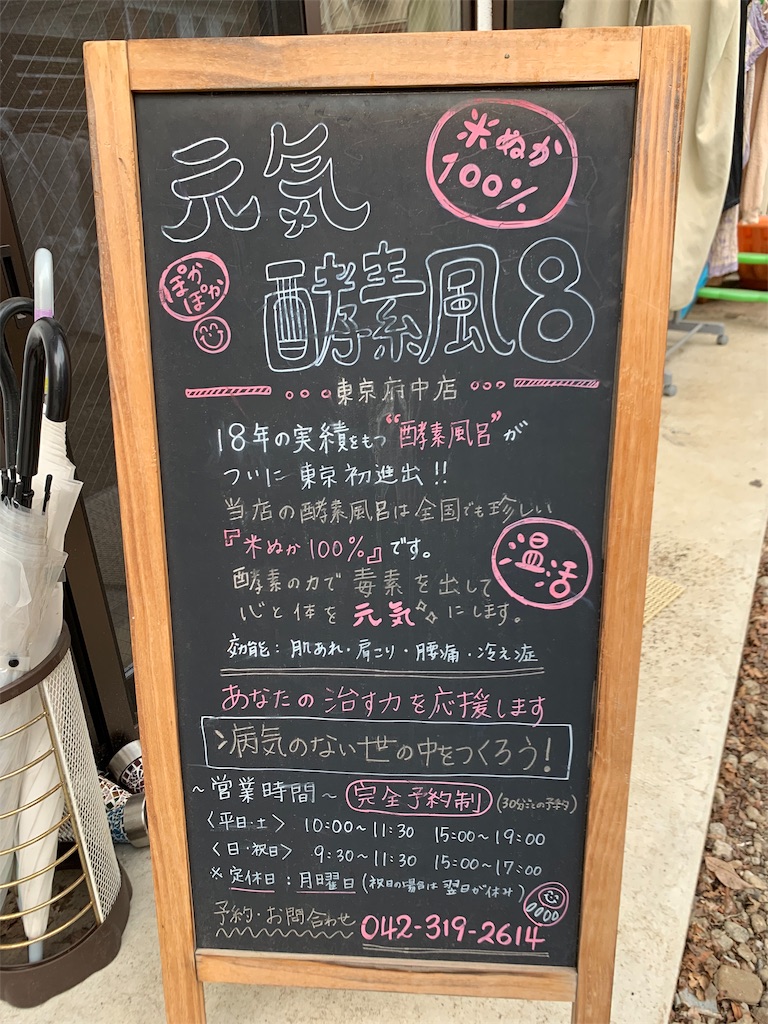 米ぬか
100%
元気
ぽか
ぽか
酵素風8
東京府中店
18年の実績をもつ"酵素風呂"が
ついに東京初進出!!
当店の酵素風呂は全国でも珍しい
『米ぬか100%』です。
温活
酵素の力で毒素を出して
心と体を元気にします。
効能:肌あれ・肩こり・腰痛・冷え症
あなたの治す力を応援します
病気のない世の中をつくろう!
~営業時間~ 完全予約制 (30分ごとの予約)
〈平日・土〉 10:00~11:30 15:00~19:00
〈日・祝日〉 9:30~11:30 15:00~17:00
※定休日:月曜日(祝日の場合は翌日が休み)
予約・お問合わせ 042-319-2614